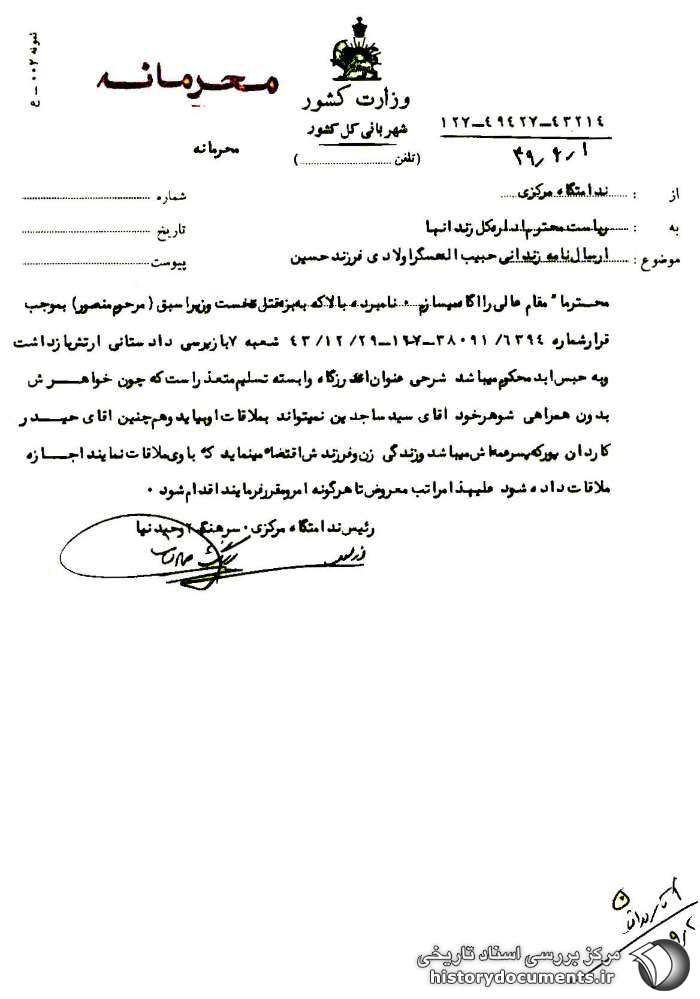 نمونه ۰۰۲ – ع
محرمانه
وزارت کشور
شهربانی کل کشور
(تلفن ....................)
محرمانه
۱۲۷-۴۹۴۲۷-۴۳۲۱۴
از : ندامتگاه مرکزی
شماره
به : ریاست محترم اداره کل زندانها
تاریخ
موضوع : ارسال نامه زندانی حبیب اله عسگراولادی فرزند حسین
پیوست
محترما" مقام عالی را آگاه میسازیم ۰ نامبرده بالا که به بزه قتل نخست وزیر اسبق (مرحوم منصور) بموجب
قرار شماره ۶۳۹۴/ ۳۸۰۹۱-۱۶۷- ۴۳/۱۲/۲۹ شعبه ۷ بازپرسی دادستانی ارتش بازداشت
وبه حبس ابد محکوم میباشد شرحی عنوان اندرزگاه وابسته تسلیم متعذر است که چون خواهرش
بدون همراهی شوهر خود آقای سید ساجدین نمیتواند بملاقات او بیاید و هم چنین آقای حیدر
کاردان پور که پسرعمه اش میباشد وزندگی زن و فرزندش اقتضاء مینماید که با وی ملاقات نمایند اجازه
ملاقات داده شود علیهذا مراتب معروض تا هرگونه امر و مقرر فرمایند اقدام شود ۰
رئیس ندامتگاه مرکزی ۰ سرهنگ ۲ وحیدنیا
مرکز بررسی اسناد تاریخی
historydocuments.ir